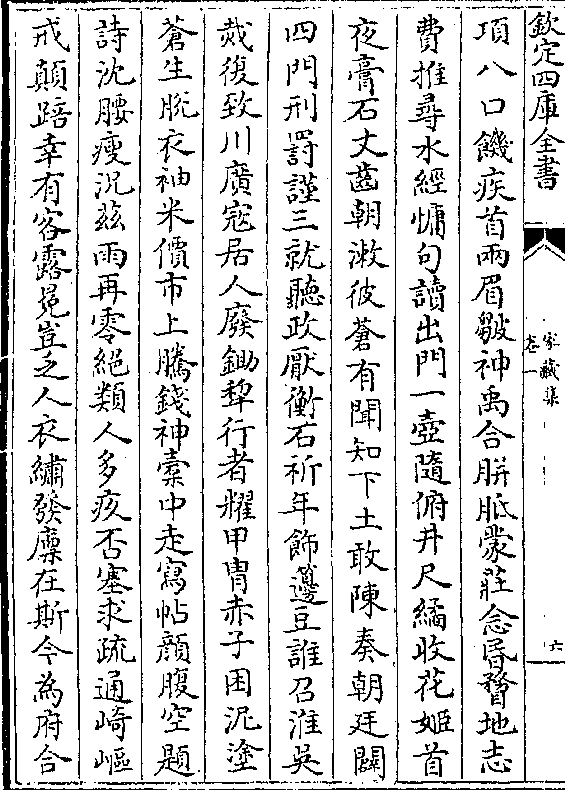 欽定四庫全書
家藏集
卷一
六
項八口饑疾首兩眉皺神禹合胼胝蒙莊念昏瞀地志
費推尋水經慵句讀出門一壺隨俯井尺繘收花姬首
夜膏石丈齒朝漱彼蒼有聞知下土敢陳奏朝廷闢
四門刑罰謹三就聽政厭衡石祈年飾籩豆誰召淮吳
烖復致川廣寇居人廢鋤犁行者耀甲胄赤子困泥塗
蒼生脫衣袖米價市上騰錢神橐中走寫帖顔腹空題
詩沈腰瘦況兹雨再零絕類人多疚否塞求疏通崎嶇
戒顛踣幸有客露冕豈乏人衣繡發廩在斯今為府合